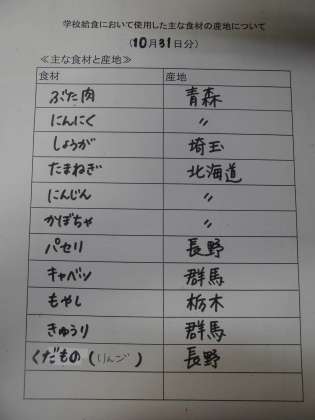 学校給食において使用した主な食材の産地について
(10月31日分)
≪主な食材と産地≫
食材 産地
ぶた肉 青森
にんにく 〃
しょうが 埼玉
たまねぎ 北海道
にんじん 〃
かぼちゃ 〃
パセリ 長野
キャベツ 群馬
もやし 栃木
きゅうり 群馬
くだもの(りんご) 長野